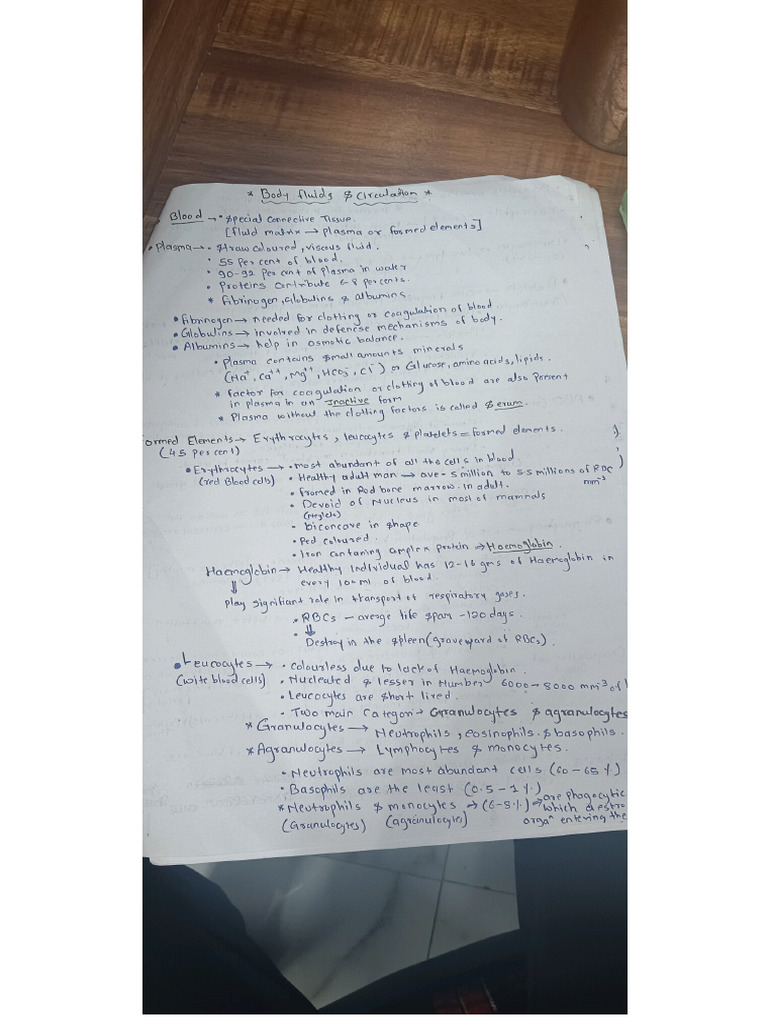 * Body fluids & Circulation *
Blood → • Special Connective Tissue.
[fluid matrix → plasma or formed elements]
• Plasma → • Straw coloured, viscous fluid.
• 55 per cent of blood.
• 90-92 per cent of plasma in water
• Proteins contribute 6-8 percents.
* Fibrinogen, Globulins & albumins
• Fibrinogen → needed for clotting or coagulation of blood
• Globulins → involved in defense mechanisms of body.
• Albumins → help in osmotic balance.
• Plasma contains small amounts minerals
(Na⁺, Ca⁺⁺, Mg⁺⁺, HCO₃⁻, Cl⁻) or Glucose, amino acids, lipids.
* factor for coagulation or clotting of blood are also Persent
in plasma in an Inactive form
* Plasma without the clotting factors is called Serum.
ormed Elements → Erythrocytes, leucocytes & platelets = formed elements.
(45 Per cent)
• Erythrocytes → • most abundant of all the cells in blood
(red Blood cells) • Healthy adult man → ave - 5 million to 5.5 millions of RBC
mm⁻³
• fromed in Rod bone marrow. In adult.
• Devoid of Nucleus in most of mamnals
• biconcave in shape
• Red coloured.
• Iron contaning complex protein → Haemoglobin.
Haemoglobin → Healthy Individual has 12-16 gms of Haemoglobin in
every 100ml of blood.
⇓
Play signifiant role in transport of respiratory gases.
• RBCs - averge life span - 120 days.
• ⇓
Destroy in the spleen (graveyard of RBCs).
• Leucocytes → • colourless due to lack of Haemoglobin.
(wite blood cells) • Nucleated & lesser in Number 6000 - 8000 mm⁻³ of
• Leucocytes are short lived.
• Two main Categori → Granulocytes & agranulocytes
* Granulocytes → Neutrophils, eosinophils & basophils.
* Agranulocytes → Lymphocytes & monocytes.
• Neutrophils are most abundant cells (60 - 65%)
• Basophils are the least (0.5 - 1%)
* Neutrophils & monocytes → (6-8%) → are Phagocytic
(Granulocytes) (agranulocytes) which destro
orgaⁿ entering the